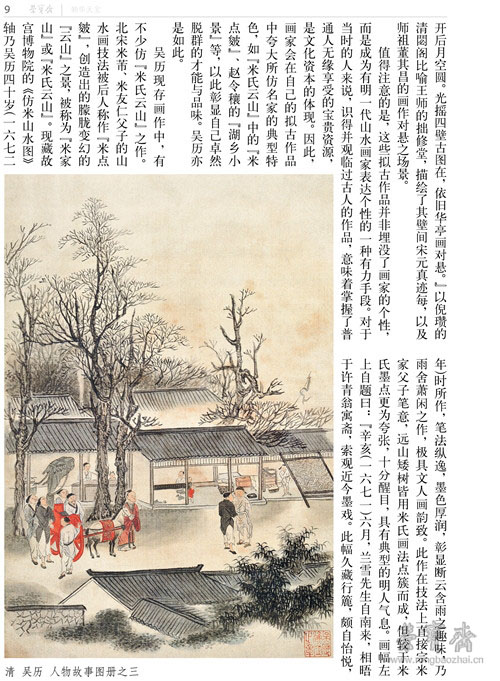 9
荣宝斋
开后月空圆。光摇四壁古图在，依旧华亭画对悬。』以倪瓒的
清閟阁比喻王师的拙修堂，描绘了其壁间宋元真迹每，以及
师祖董其昌的画作对悬之场景。
值得注意的是，这些拟古作品并非埋没了画家的个性，
而是成为有明一代山水画家表达个性的一种有力手段。对于
当时的人来说，识得并观临过古人的作品，意味着掌握了普
通人无缘享受的宝贵资源，
是文化资本的体现。因此，
画家会在自己的拟古作品
中夸大所仿名家的典型特
色，如『米氏云山』中的『米
点皴』、赵令穰的『湖乡小
景』等，以此彰显自己卓然
脱群的才能与品味。吴历亦
是如此。
吴历现存画作中，有
不少仿『米氏云山』之作。
北宋米芾、米友仁父子的山
水画技法被后人称作『米点
皴』，创造出的朦胧变幻的
『云山』之景，被称为『米家
山』或『米氏云山』。现藏故
宫博物院的《仿米山水图》
轴乃吴历四十岁（一六七二
年）时所作，笔法纵逸，墨色厚润，彰显断云含雨之趣味，乃
雨舍萧闲之作，极具文人画韵致。此作在技法上直接宗米
家父子笔意，远山矮树皆用米氏画法点簇而成，但较于米
氏墨点更为夸张，十分醒目，具有典型的明人气息。画幅左
上自题曰：『辛亥（一六七一）六月，兰雪先生自南来，相晤
于许青翁寓斋，索观近今墨戏。此幅久藏行簏，颇自怡悦，
清 吴历 人物故事图册之三
荣宝斋
www.rongbaozhai.cn